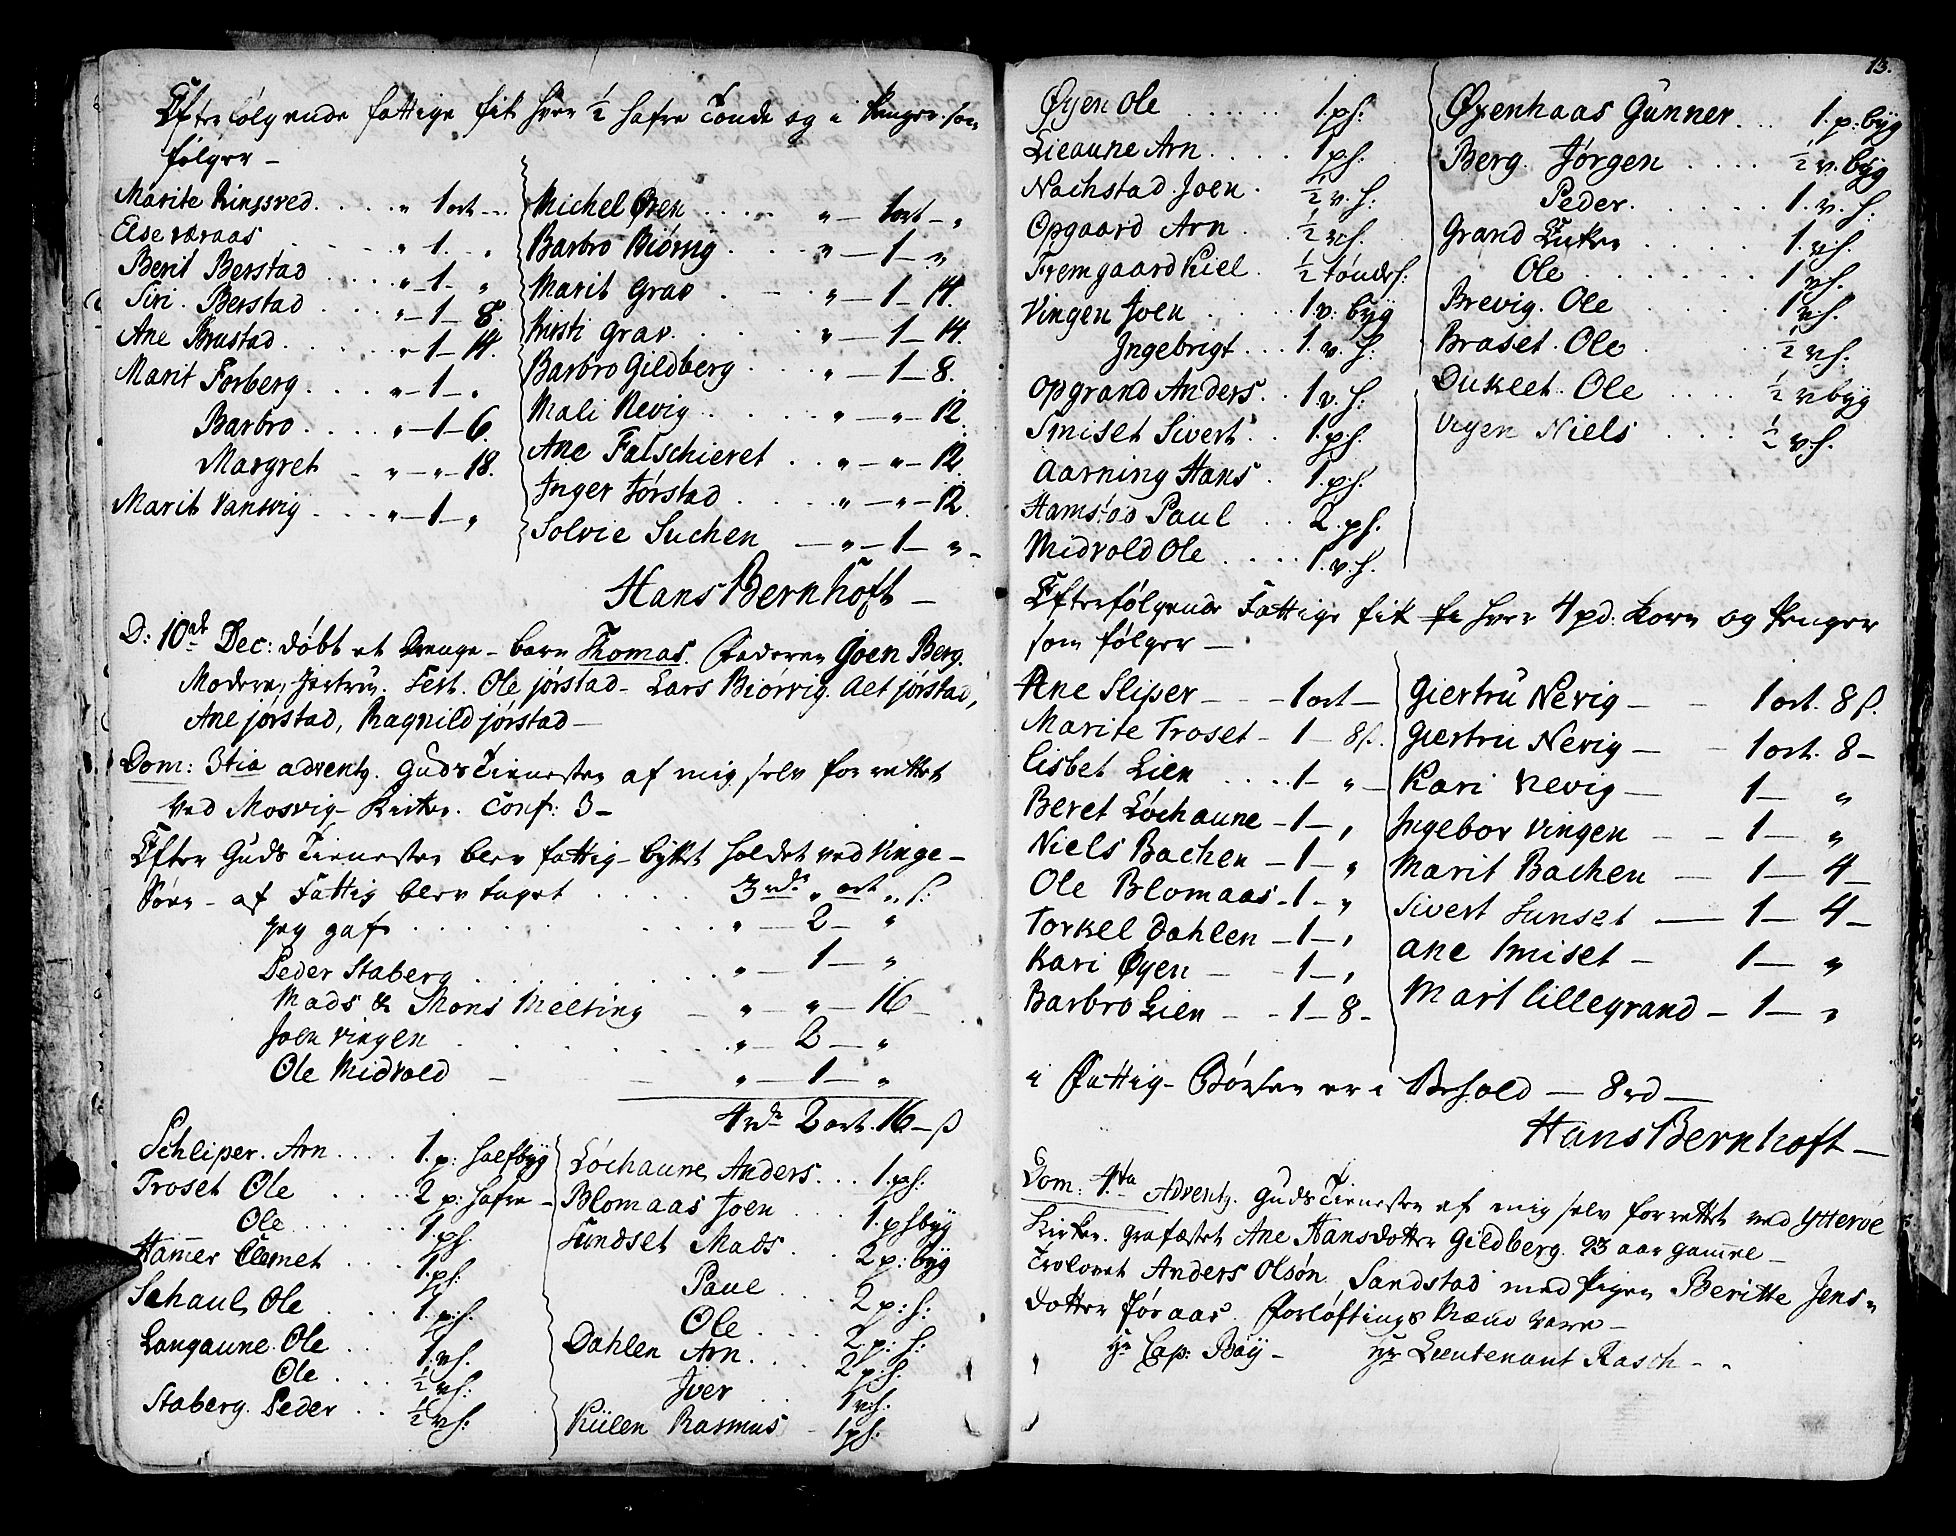 Efterfølgende fattige fik hver ½ hafre Tønde og i Penger som
følger –
Marite Ringsved . . . . „ 1 ort –
Else væraas . . . . „ 1. „
Berit Berstad . . . . „ – 1 – „
Siri. Berstad . . . . „ – 1 – 8
Ane Brustad . . . . „ – 1 – 14.
Marit Forberg . . . . „ – 1 – „
Barbro . . . . „ – 1 – 6.
Margret – „ – „ – 18.
Marit Vansvig . . . „ – 1 – „
Michel Øren . . . . „ – 1 ort – „
Barbro Biørnig . . . . „ – 1 – „
Marit Grav . . . . „ – 1 – 14.
Kirsti Grav . . . . „ – 1 – 14.
Barbro Gildberg . . . . „ – 1 – 8.
Mali Nevig . . . . „ – „ – 12
Ane Falschieret . . „ – „ – 12
Inger Jørstad . . . . „ – „ – 12
Solvie Suchen – „ – 1 – „ –
Hans Bernhoft –
D: 10de Dec: døbt et Drenge-barn Thomas. Faderen Joen Berg.
Modern, Jertru. Test. Ole jørstad – Lars Biørvig. Aet jørstad,
Ane jørstad, Ragnild jørstad –
Dom: 3tia adventg. Guds Tienesten af mig self forrettet
ved Mosvig – Kirke. Conf: 3 –
Efter Guds Tienesten blev fattig-bytet holdet ved Vinge –
Søen – af Fattig blev taget . . . . . 3 rdr „ ort „ s:
Jeg gaf . . . . . „ – 2 – „
Peder Staberg . . . . . „ – 1 – „
Mads & Mons Melting – „ – „ – 16 –
Joen Vingen . . . . . „ – 2 – „
Ole Midvold – „ – 1 – „
4 rdr 2 ort. 16 – ß
Schliper. Arn . . . . 1. p: halfbyg
Troset Ole . . . . 2 p: hafre –
Ole . . . . 1. ph.
Ham̅er Clemet . . . 1. ph.
Schaul, Ole . . . . 1. p.h.
Langaune. Ole . . . 1. vh.
Ole . . . . ½ vh:
Staberg. Peder . . . ½ vh:
Løchaune, Anders . . . 1. ph:
Blomaas Joen . . . . 1. ph byg
Sundset Mads . . 2 p: byg
Paul . . . . 2 p: h:
Ole . . . . 2 p: h:
Dahlen Arn . . . . 2 p: h.
Iver . . . 1 v.h.
Külen Rasmus – 1 ph.
13.
Øyen Ole . . . . . . 1. ph:
Lieaune Arn . . . . 1 ph.
Nachstad. Joen . ½ v. h:
Opgaard Arn . ½ vh.
Fremgaard Kiel . ½ tønde h:
Vingen Joen . . . . 1. v: byg
Ingebrigt . . . 1. v. h:
Opgrand Anders . . 1. v. h:
Smiset Sivert . . 1. ph:
Aarning Hans . 1. p.h.
Hamstoo Paul . . 2. ph.
Midvold Ole . . . . 1. v. h.
Øxenhaas Gunner . . . 1. p: byg
Berg. Jørgen . . . . ½ v. byg
Peder . . . . . 1. v. h:
Grand . . . . . 1. vh.
Ole . . . . . . 1 vh.
Brevig. Ole . . . . 1 vh.
Braset. Ole . . . . ½ vh:
Dukleet Ole . . . . ½ v byg
Viyen Niels . . . . ½ v.h.
Efterfølgende Fattige fik hver 4 pd: Korn og Penger
som følger –
Ane Sliper – – – 1 ort –
Marite Troset – 1 – 8 ß.
Lisbet Lien . . . . 1 – „ –
Beret Løchaune – 1 – „
Niels Bachen – 1 – „
Ole Blomaas – 1 – „
Torkel Dahlen – 1 – „
Kari Øyen – – 1 – „
Barbro Lien – – 1 – 8 –
Giertru Nevig – – 1 ort. 8 ß.
Giertru Nevig – – 1 ort. 8 –
Kari Nevig – 1 – „
Ingebor Vingen – – 1 – „
Marit Bachen – 1 – 4 –
Sivert Sunset – 1 – 4 –
Ane Smiset – 1 – „
Marit Lillegrand – 1 – „
i Fattig-Børsen er i Behold – 8 rd –
Hans Bernhoft –
Dom: 4ta Adventg. Guds Tienesten af mig self forrettet ved Ytterøe
Kirke. Grafæstet Ane Hansdotter Gildberg. 93 aar gam̅el –
Trolovet Anders Olsøn Sandstad med Pigen Beritte Jens-
dotter Føraas. Forløftings Mænd vare –
Hr Cap: Bøy – Hr Lieutenant Rasch – –